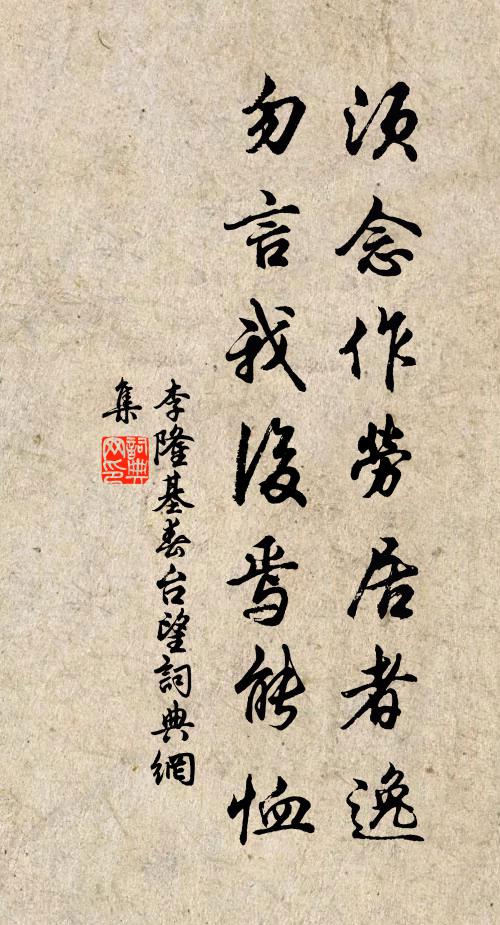 須念作勞居者逸
勿言我後焉能恤
李隆基春台望詞典網
集
詞典
网印